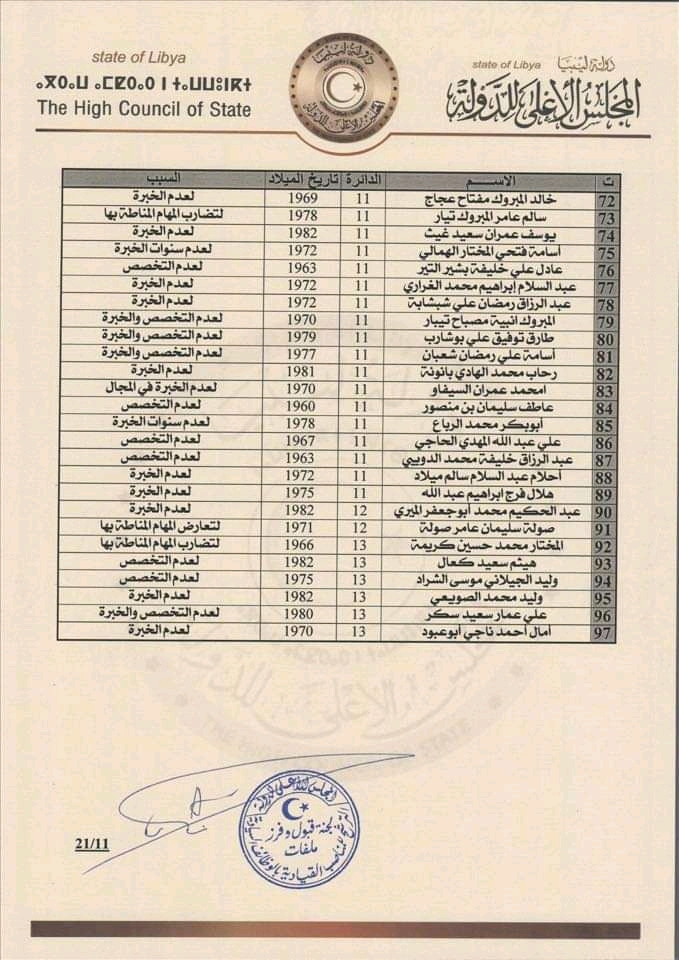 state of Libya
ⴰⵅⵔⴰⵡ ⴰⵎⵇⵔⴰⵔ ⵏ ⵜⴰⵡⵡⵓⵏⴽⵜ
The High Council of State
دولة ليبيا
state of Libya دولة ليبيا
المجلس الأعلى للدولة
ت الاسم الدائرة تاريخ الميلاد السبب
72 خالد المبروك مفتاح عجاج 11 1969 لعدم الخبرة
73 سالم عامر المبروك تيار 11 1978 لتضارب المهام المناطة بها
74 يوسف عمران سعيد غيث 11 1982 لعدم الخبرة
75 أسامة فتحي المختار الهمالي 11 1972 لعدم سنوات الخبرة
76 عادل علي خليفة بشير التير 11 1963 لعدم التخصص
77 عبد السلام إبراهيم محمد الغراري 11 1972 لعدم الخبرة
78 عبد الرزاق رمضان علي شبشابة 11 1972 لعدم الخبرة
79 المبروك انبية مصباح تيبار 11 1970 لعدم التخصص والخبرة
80 طارق توفيق علي بوشارب 11 1979 لعدم التخصص والخبرة
81 أسامة علي رمضان شعبان 11 1977 لعدم التخصص والخبرة
82 رحاب محمد الهادي بانونة 11 1981 لعدم الخبرة
83 امحمد عمران السيفاو 11 1970 لعدم الخبرة في المجال
84 عاطف سليمان بن منصور 11 1960 لعدم التخصص
85 أبوبكر محمد الرباع 11 1978 لعدم سنوات الخبرة
86 علي عبد الله المهدي الحاجي 11 1967 لعدم التخصص
87 عبد الرزاق خليفة محمد الدويبي 11 1963 لعدم التخصص
88 أحلام عبد السلام سالم ميلاد 11 1972 لعدم الخبرة
89 هلال فرج ابراهيم عبد الله 11 1975 لعدم الخبرة
90 عبد الحكيم محمد أبوجعفر الميري 12 1982 لعدم الخبرة
91 صولة سليمان عامر صولة 12 1971 لتعارض المهام المناطة بها
92 المختار محمد حسين كريمة 13 1966 لتضارب المهام المناطة بها
93 هيثم سعيد كعال 13 1982 لعدم التخصص
94 وليد الجيلاني موسى الشراد 13 1975 لعدم التخصص
95 وليد محمد الصويعي 13 1982 لعدم الخبرة
96 علي عمار سعيد سكر 13 1980 لعدم التخصص والخبرة
97 أمال أحمد ناجي أبوعبود 13 1970 لعدم الخبرة
المجلس الاعلى للدولة
لجنة قبول و فرز
ملفات
القيادية بالوظائف
21/11